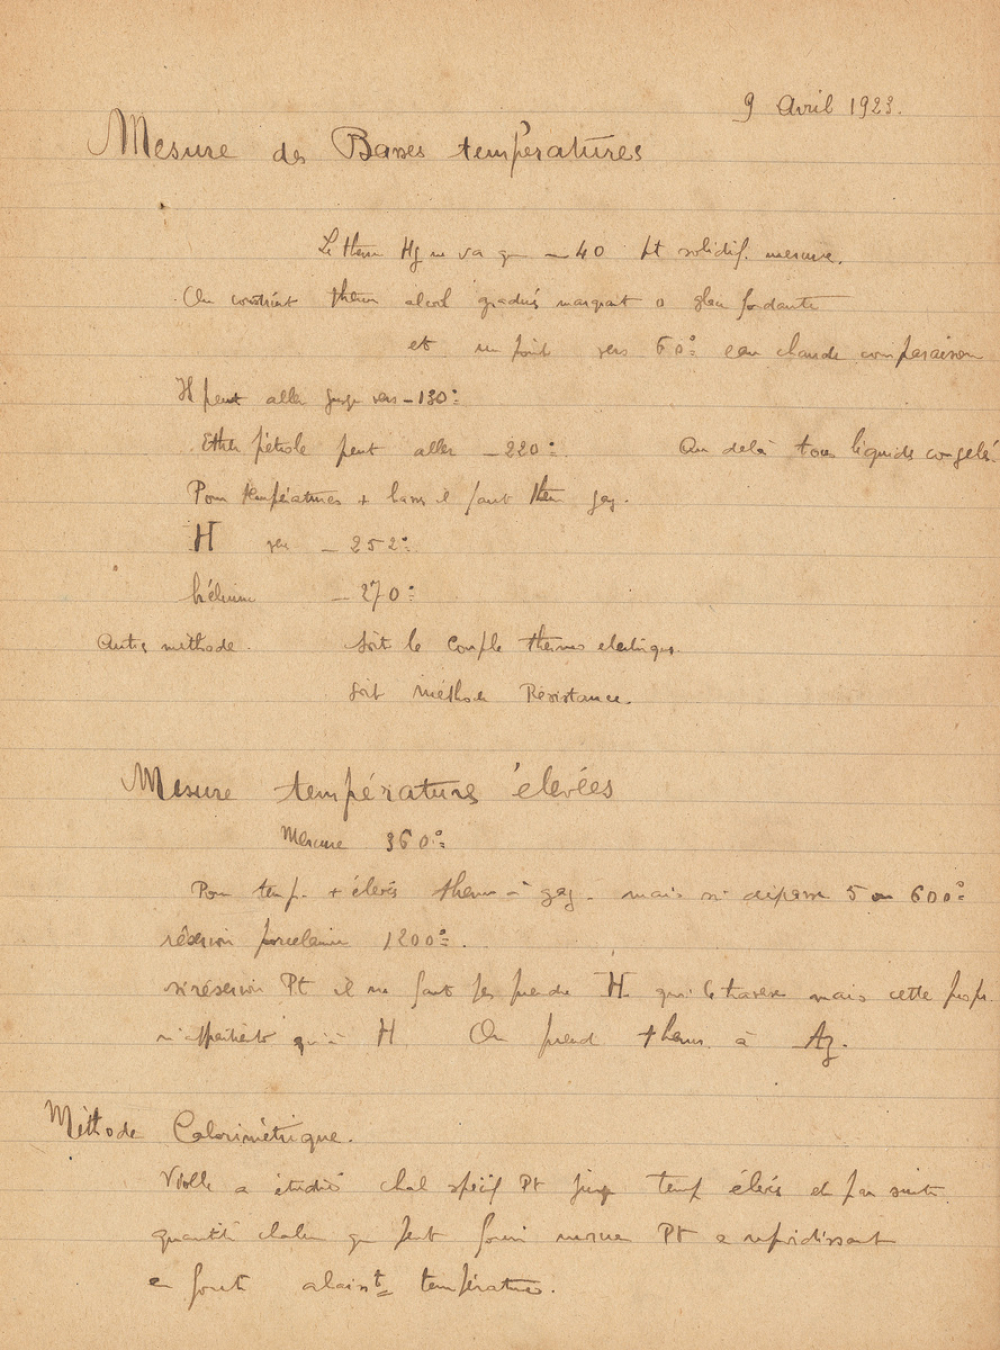 9 Avril 1923.
Mesure des Basses températures
Le therm Hg ne va que - 40 pt solidif. mercure.
On construit therm alcool gradués marquant 0 glace fondante
et un point vers 60° eau chaude comparaison
Il peut aller jusque vers -130°
Ether pétrole peut aller - 220° Au delà tous liquides congelés.
Pour températures + basses il faut therm gaz.
H vers - 252°
hélium - 270°
Autres méthode. Soit le Couple thermo électrique.
soit méthode Résistance.
Mesure températures élevées
Mercure 360°
Pour temp. + élevés therm à gaz. mais si dépasse 5 ou 600°
réservoir porcelaine 1200°.
si réservoir Pt il ne faut pas prendre H qui le traverse mais cette prop.
n'appartient qu'à H. On prend therm. à Az.
Méthode Calorimétrique.
Violle a étudié chal spécif Pt jusque temp élevés et par suite
quantité chaleur que peut fournir Pt en refroidissant
temperatures.